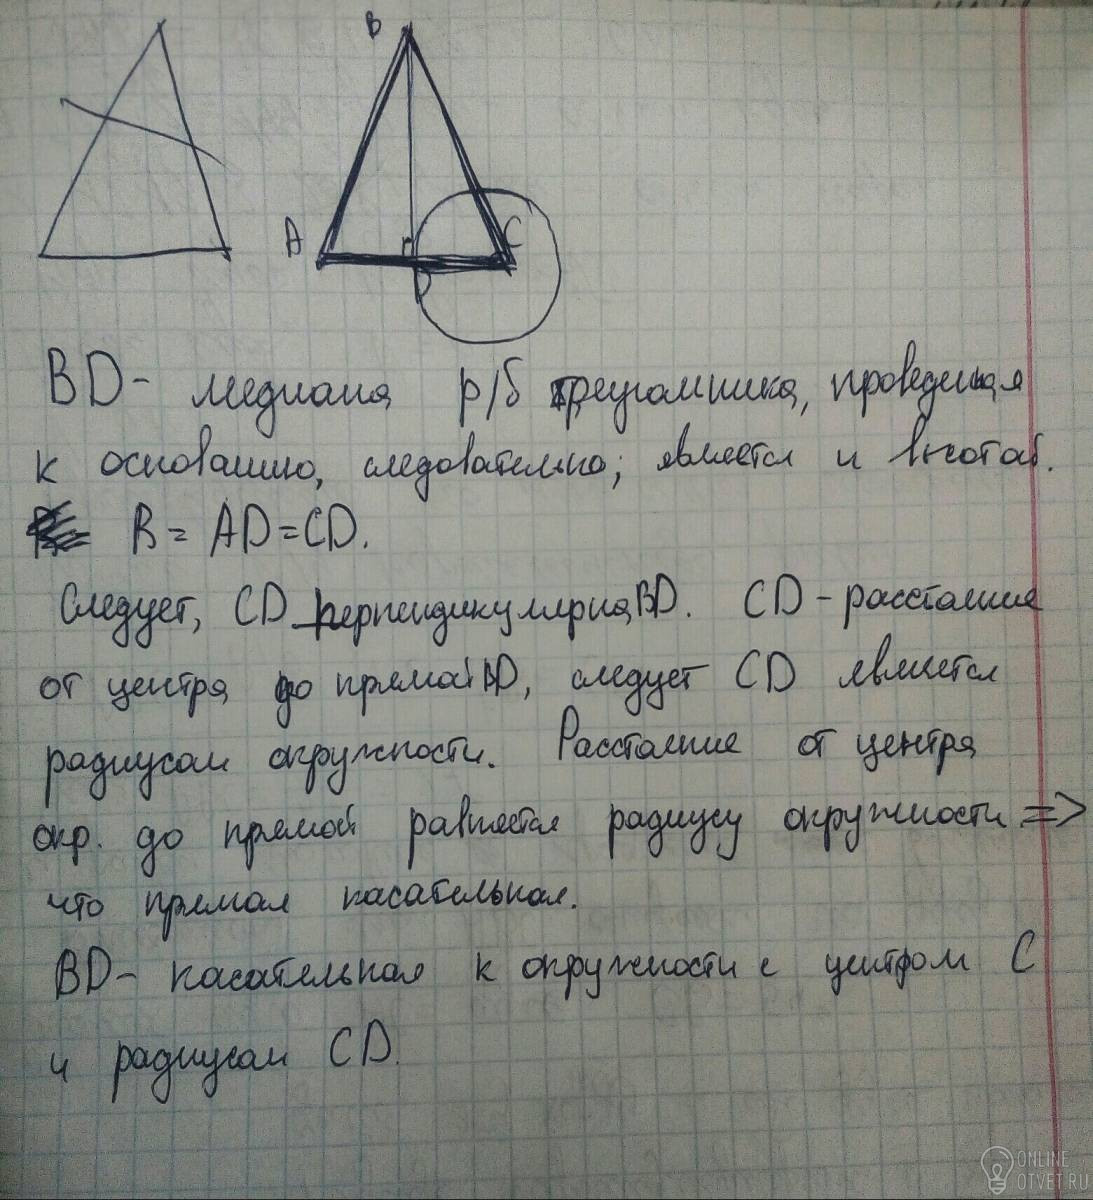 B
A
C
D
BD - медиана р/б треугольника, проведенная
к основанию, следовательно, является и высотой.
R = AD = CD.
Следует, CD перпендикулярна BD. CD - расстояние
от центра до прямой BD, следует CD является
радиусом окружности. Расстояние от центра
окр. до прямой равняется радиусу окружности =>
что прямая касательная.
BD - касательная к окружности с центром C
и радиусом CD.
ONLINE
OTVET.RU